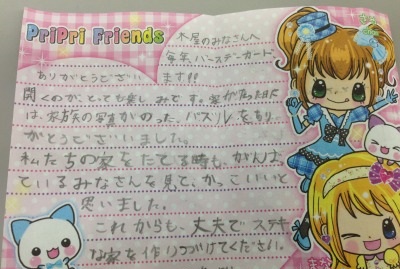 PriPri Friends
木屋のみなさんへ
毎年バースデーカード
ありがとうござい
ます!!
開くのが、とっても楽しみです。家が建った時に
は、家族の写真がのった、パズルをあり
がとうございました。
私たちの家をたてる時も、がんばっ
ているみなさんを見て、かっこいいと
思いました。
これからも、丈夫でステキ
な家を作りつづけてください。